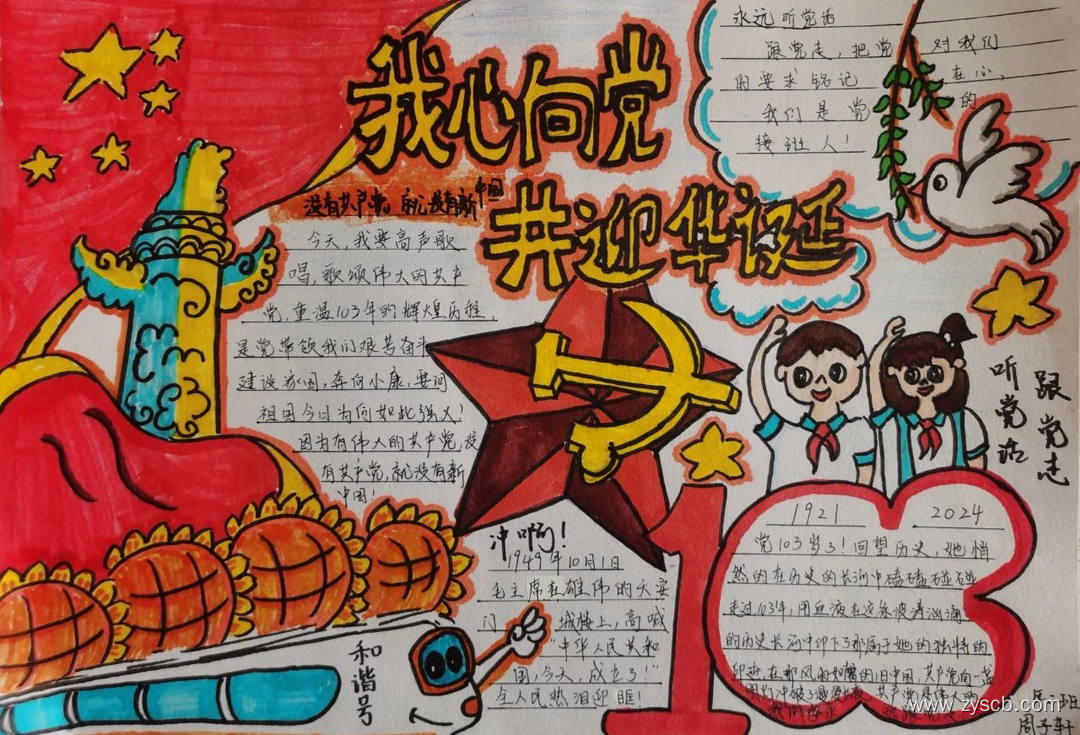 我心向党
共迎华诞
没有共产党,就没有新中国
今天,我要高声歌
唱,歌颂伟大的共产
党,重温103年的辉煌历程,
是党带领我们艰苦奋斗
建设家园,奔向小康,要问
祖国今日为何如此强大!
因为有伟大的共产党,没
有共产党,就没有新
中国!
永远听党话
跟党走,把党 对我们
的要求铭记 在心,
我们是党 的
接班人!
听党话
跟党志
冲啊!
1949年10月1日
毛主席在雄伟的天安
门 城楼上,高喊
“中华人民共和
国,今天,成立了!”
全人民热泪迎眶!
和谐号
1921 2024
党103岁了!回望历史,她悄
然的在历史的长河中磕磕碰碰
走过103年,用血液在这条波涛汹涌
的历史长河中印下了那属于她的独特的
印迹,在那风雨如磐的旧中国,共产党向一盏
周子轩
www.zyscb.com